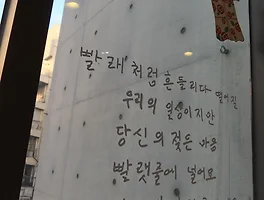 빨래처럼 흔들리다 떨어질
우리의 일상이지만
당신의 젖은 마음
빨랫줄에 널어요